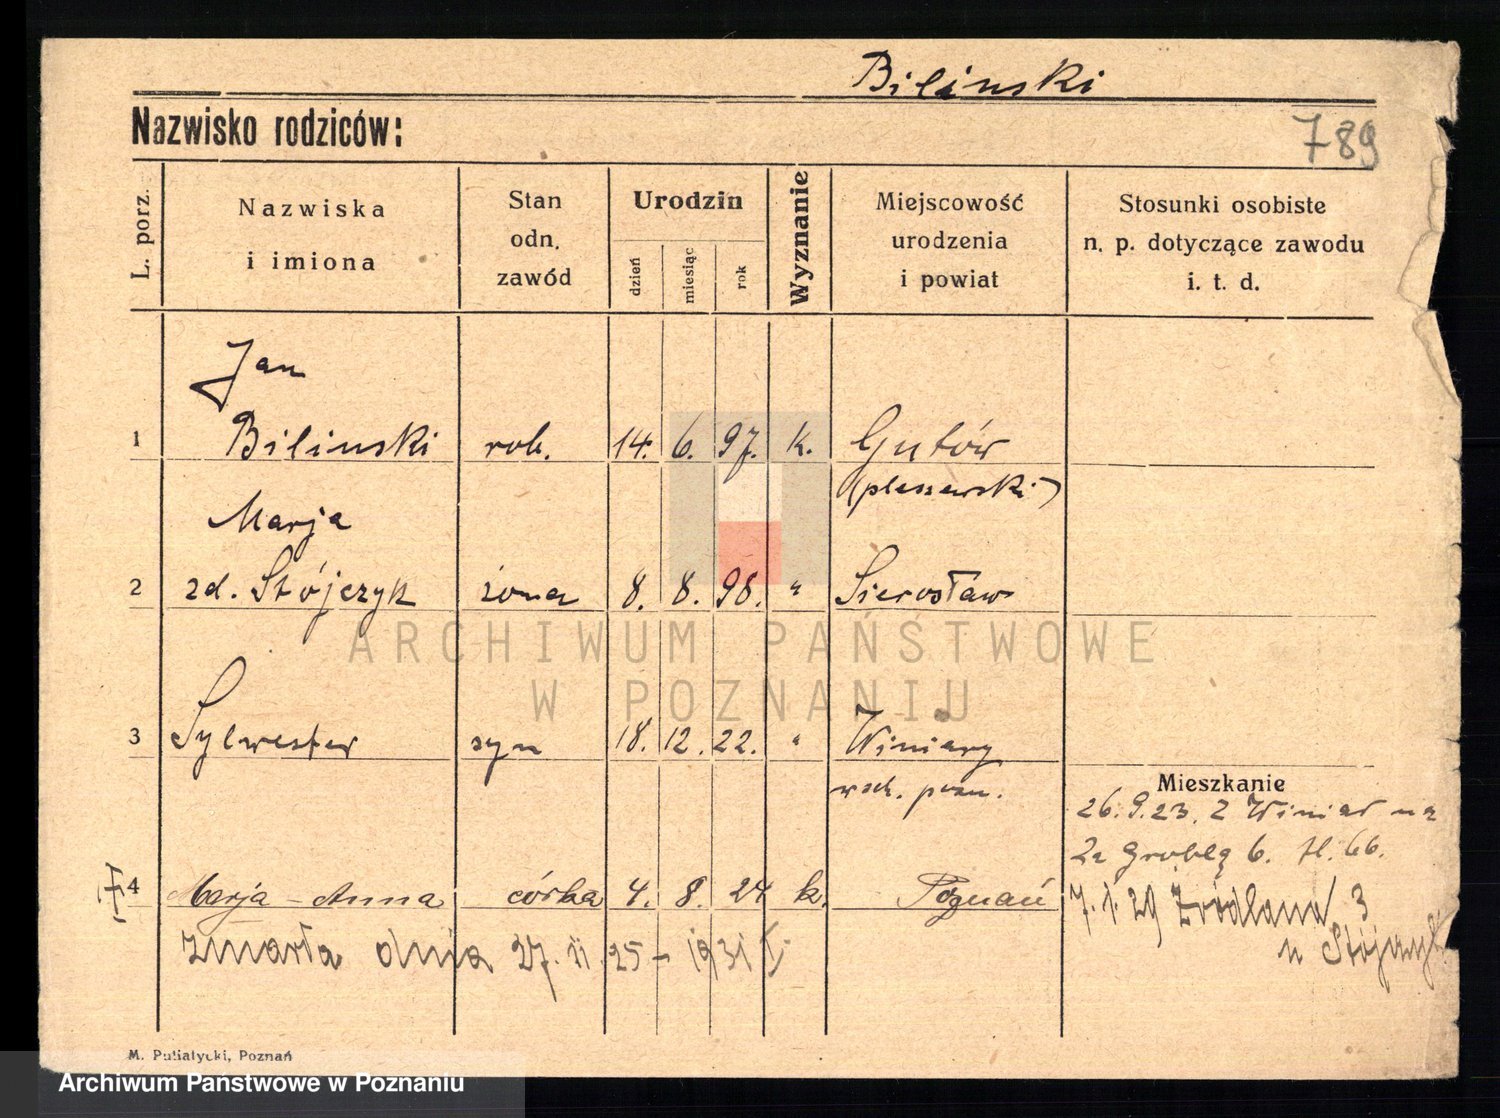 Bilinski
Nazwisko rodziców:
789
L. porz.
Nazwiska
i imiona
Stan
odn.
zawód
Urodzin
dzień
miesiąc
rok
Wyznanie
Miejscowość
urodzenia
i powiat
Stosunki osobiste
n. p. dotyczące zawodu
i. t. d.
Jan
1 Bilinski rob. 14. 6. 97. k. Gutów
(pleszewski)
Marja
2 zd. Stójczyk żona 8. 8. 98. " Sierosław
ARCHIWUM PAŃSTWOWE
W POZNANIU
3 Sylwester syn 18. 12. 22. " Winiary
wsch. pozn.
Mieszkanie
26. 9. 23. z Winiar na
Za Groblą 6. tl. 66.
4 Marja-Anna córka 4. 8. 24 k. Poznań
7. 1. 29 Źródlana 3
u Stójczyk
zmarła dnia 27. 11. 25 - 1931 I.
M. Putiatycki, Poznań
Archiwum Państwowe w Poznaniu